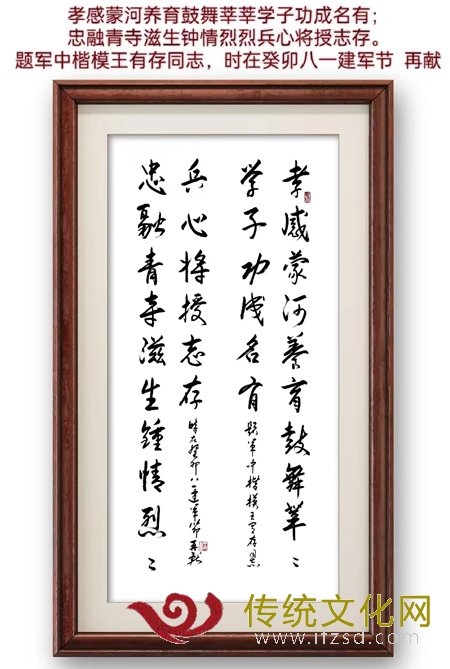 孝感蒙河养育鼓舞莘莘学子功成名有；
忠融青寺滋生钟情烈烈兵心将授志存。
题军中楷模王有存同志，时在癸卯八一建军节 再献
孝感蒙河養育鼓舞莘〻
学子功成名有
题军中楷模王有存同志
兵心将授志存
时在癸卯八一建军节再献
忠融青寺滋生鍾情烈〻
传统文化网
www.ifzsd.com